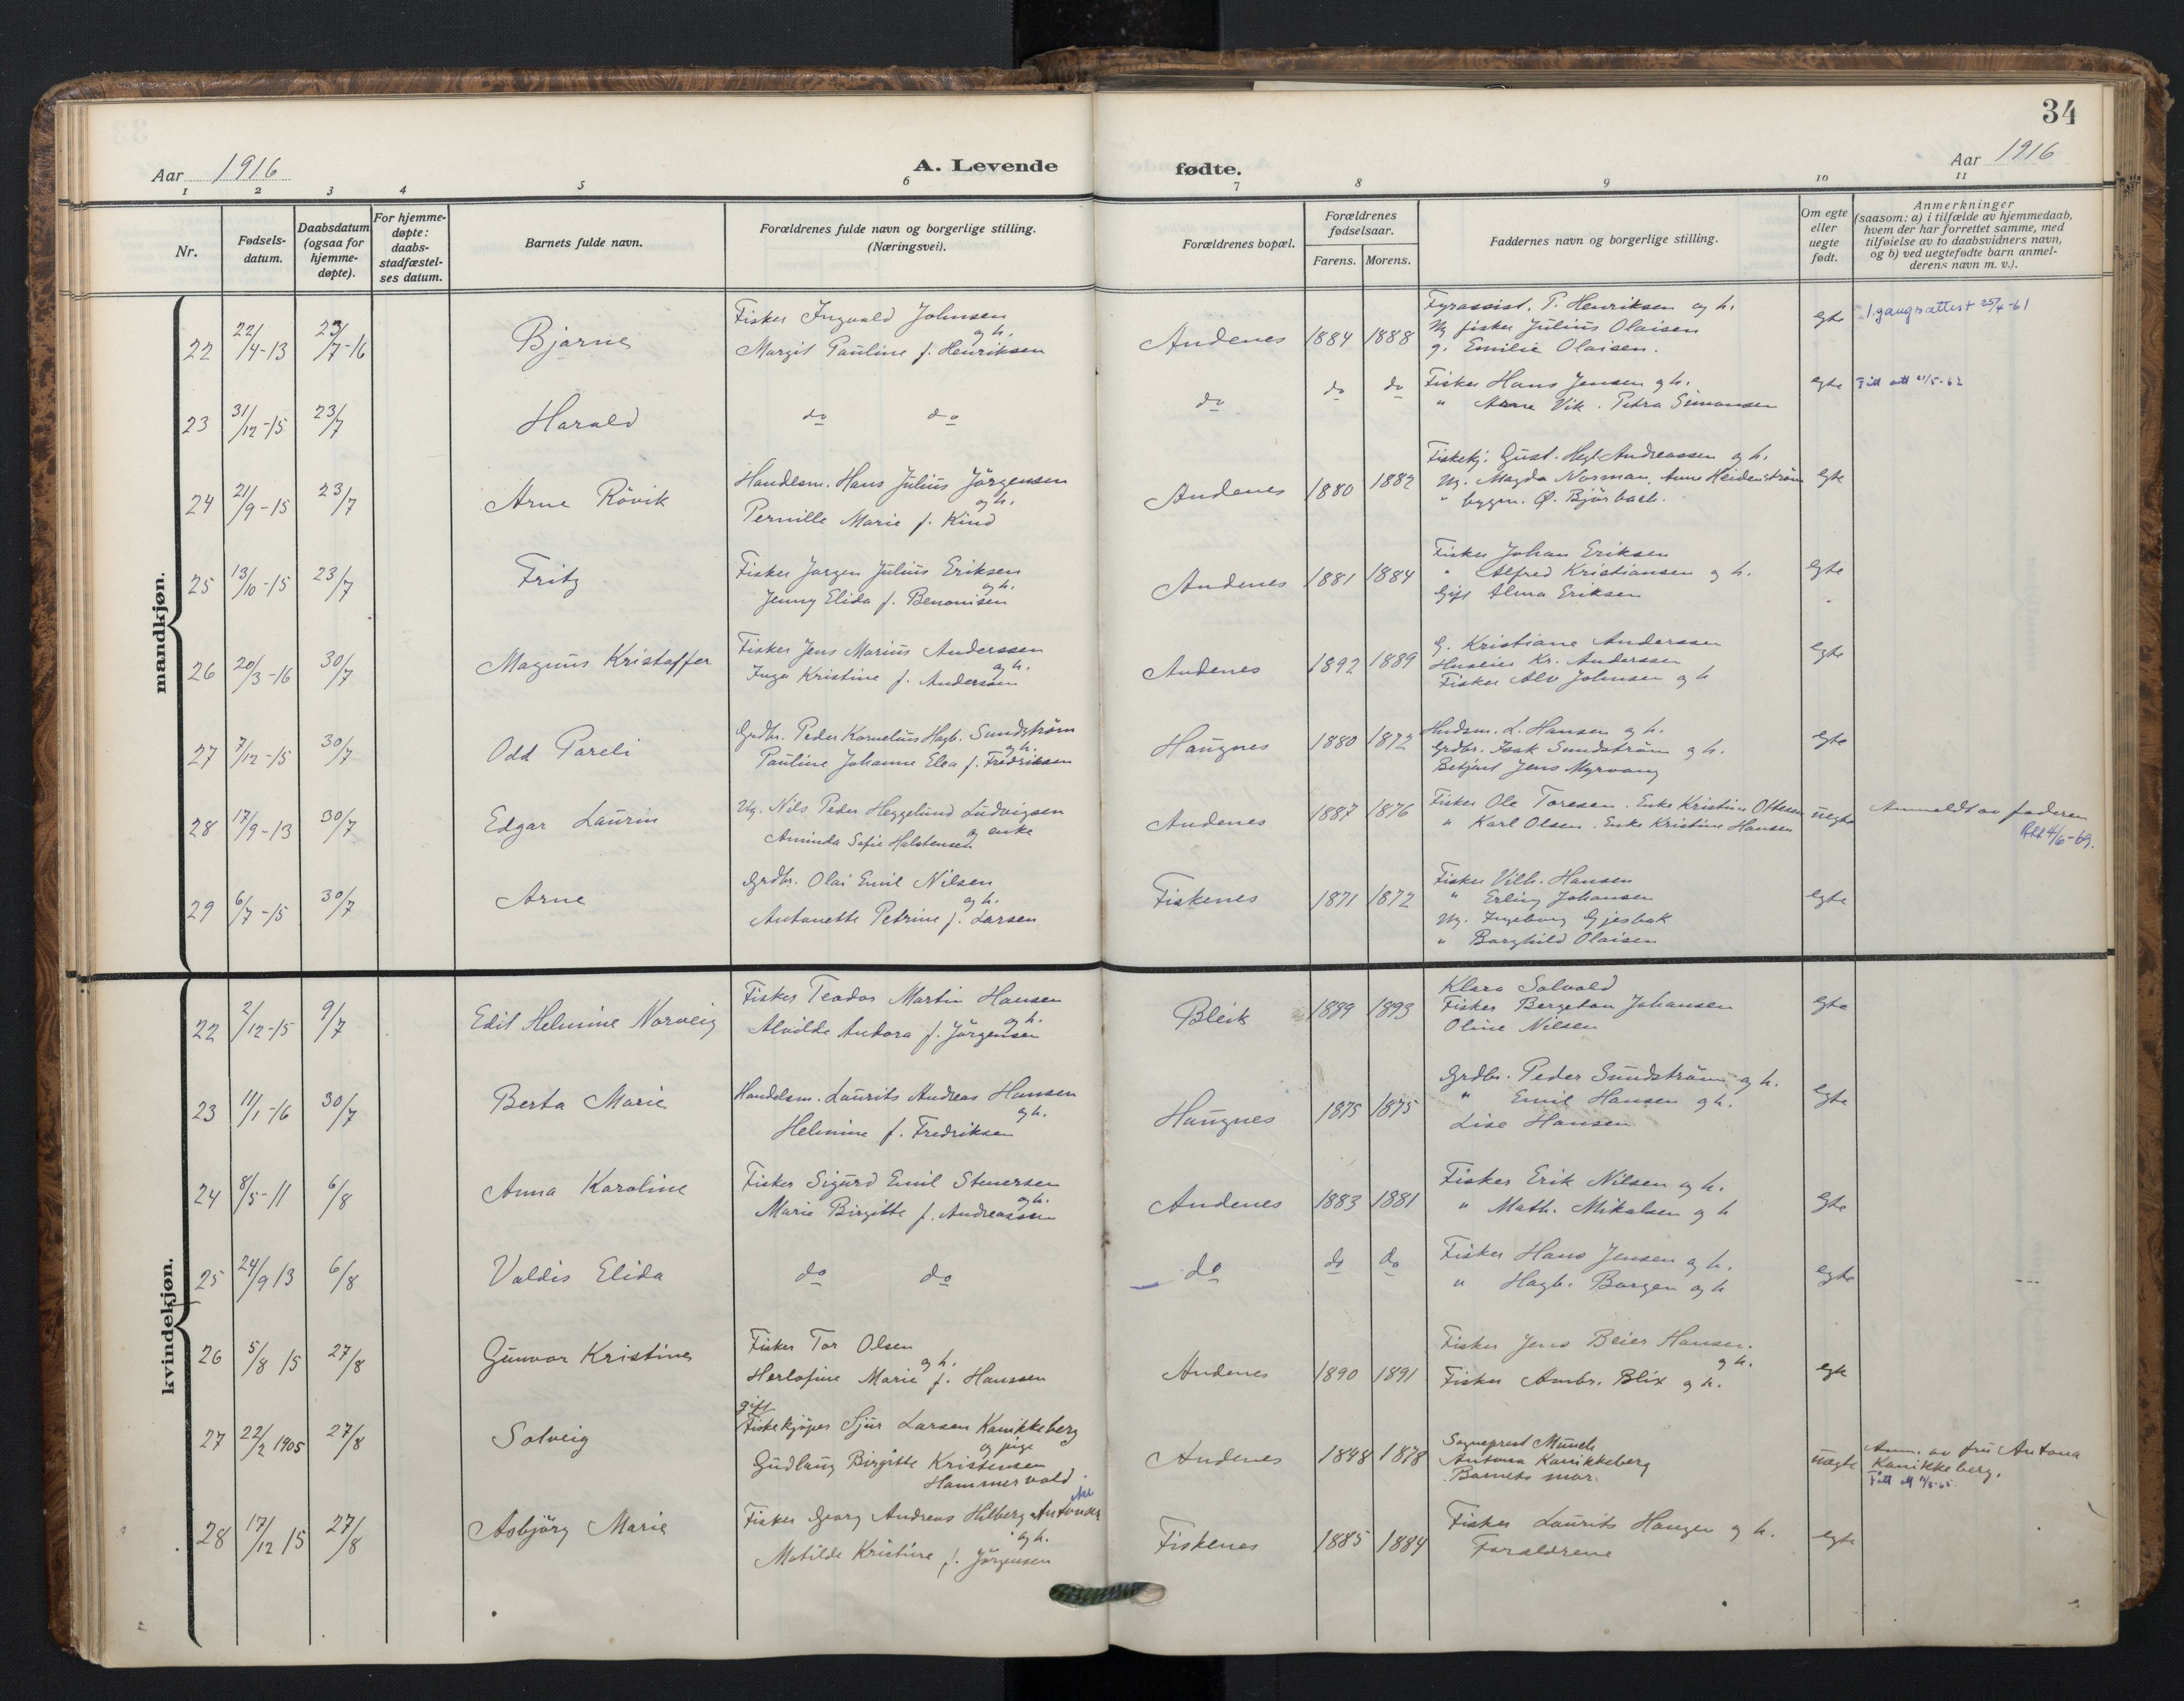 34
Aar 1916
A. Levende
fødte.
Aar 1916
1 2 3 4 5 6 7 8 9 10 11
Nr.
Fødsels-
datum.
Daabsdatum
(ogsaa for
hjemme-
døpte).
For hjemme-
døpte:
daabs-
stadfæstel-
ses datum.
Barnets fulde navn.
Forældrenes fulde navn og borgerlige stilling.
(Næringsvei).
Forældrenes bopæl.
Forældrenes
fødselsaar.
Farens. Morens.
Faddernes navn og borgerlige stilling.
Om egte
eller
uegte
født.
Anmerkninger
(saasom: a) i tilfælde av hjemmedaab,
hvem der har forrettet samme, med
tilføielse av to daabsvidners navn,
og b) ved uegtefødte barn anmel-
derens navn m. v.).
mandkjøn.
22 22/4-13 23/7-16 Bjarne
Fisker Ingvald Johnsen
og h.
Margit Pauline f. Henriksen
Andenes 1884 1888
Fyrassist. P. Henriksen og h.
Ug. fisker Julius Olaisen
g. Emilie Olaisen.
egte
1.gangsattest 25/4-61
23 31/12-15 23/7 Harald
do do
do do do
Fisker Hans Jensen og h.
" Arne Vik. Petra Simonsen
egte
Fått att 21/5-62
24 21/9-15 23/7 Arne Rövik
Handelsm. Hans Julius Jörgensen
og h.
Pernille Marie f. Kind
Andenes 1880 1882
Fiskekj. Gust. Hegl. Andreassen og h.
Ug. Magda Norman, Anne Heidenström
" bygm. Ø. Bjürbach.
egte
25 13/10-15 23/7 Fritz
Fisker Jørgen Julius Eriksen
og h.
Jenny Elida f. Benonisen
Andenes 1881 1884
Fisker Johan Eriksen
" Alfred Kristiansen og h.
Gift Alma Eriksen
egte
26 20/3-16 30/7 Magnus Kristoffer
Fisker Jens Marius Anderssen
og h.
Inga Kristine f. Anderssen
Andenes 1892 1889
G. Kristiane Anderssen
Huseier Kr. Anderssen
Fisker Alv Johnsen og h
egte
27 7/12-15 30/7 Odd Pareli
Grdbr. Peder Kornelius Hagb. Sundström
og h.
Pauline Johanne Elea f. Fredriksen
Haugnes 1880 1872
Hndsm. L. Hansen og h.
Grdbr. Isak Sundström og h.
Betjent Jens Myrvang
egte
28 17/9-13 30/7 Edgar Laurin
Ug. Nils Peder Heggelund Ludvigsen
og enke
Aminda Sofie Halstensen
Andenes 1887 1876
Fisker Ole Toresen. Enke Kristine Ottesen
" Karl Olsen. Enke Kristine Hansen
uegte
Anmeldt av faderen
Att 4/6-69.
29 6/7-15 30/7 Arne
Grdbr. Olai Emil Nilsen
og h.
Antonette Petrine f. Larsen
Fiskenes 1871 1872
Fisker Vilh. Hansen
" Erling Johansen
Ug. Ingeborg Gjesbak
" Borghild Olaisen
egte
kvindekjøn.
22 2/12-15 9/7 Edit Helmine Norveig
Fisker Teodor Martin Hansen
og h.
Alvilde Andora f. Jörgensen
Bleik 1889 1893
Klara Solvold
Fisker Bergeton Johansen
Oline Nilsen
egte
23 11/1-16 30/7 Berta Marie
Handelsm. Laurits Andreas Hansen
og h.
Helmine f. Fredriksen
Haugnes 1875 1875
Grdbr. Peder Sundström og h.
" Emil Hansen og h.
Lise Hansen
egte
24 8/5-11 6/8 Anna Karoline
Fisker Sigurd Emil Stenersen
og h.
Marie Birgitte f. Andreassen
Andenes 1883 1881
Fisker Erik Nilsen og h.
" Math. Mikalsen og h
egte
25 24/9 13 6/8 Valdis Elida
do do
do do do
Fisker Hans Jensen og h.
" Hagb. Borgen og h
egte
26 5/8 15 27/8 Gunvor Kristine
Fisker Tor Olsen
og h.
Herlofine Marie f. Hanssen
Andenes 1890 1891
Fisker Jens Beier Hansen.
og h.
Fisker Ambr. Blix og h.
egte
27 22/2 1905 27/8 Solveig
gift
Fiskekjøper Sjur Larsen Kanikkeberg
og pige
Gudlaug Birgitte Kristensen
Hammervold
Andenes 1848 1878
Sogneprest Münch
Antona Kanikkeberg
Barnets mor.
uegte
Anm. av fru Antona
Kanikkeberg.
28 17/12 15 27/8 Asbjörg Marie
Fisker Georg Andreas Hilberg Antonsen
og h.
Matilde Kristine f. Jörgensen
Fiskenes 1885 1884
Fisker Laurits Haugen og h.
Forældrene
egte